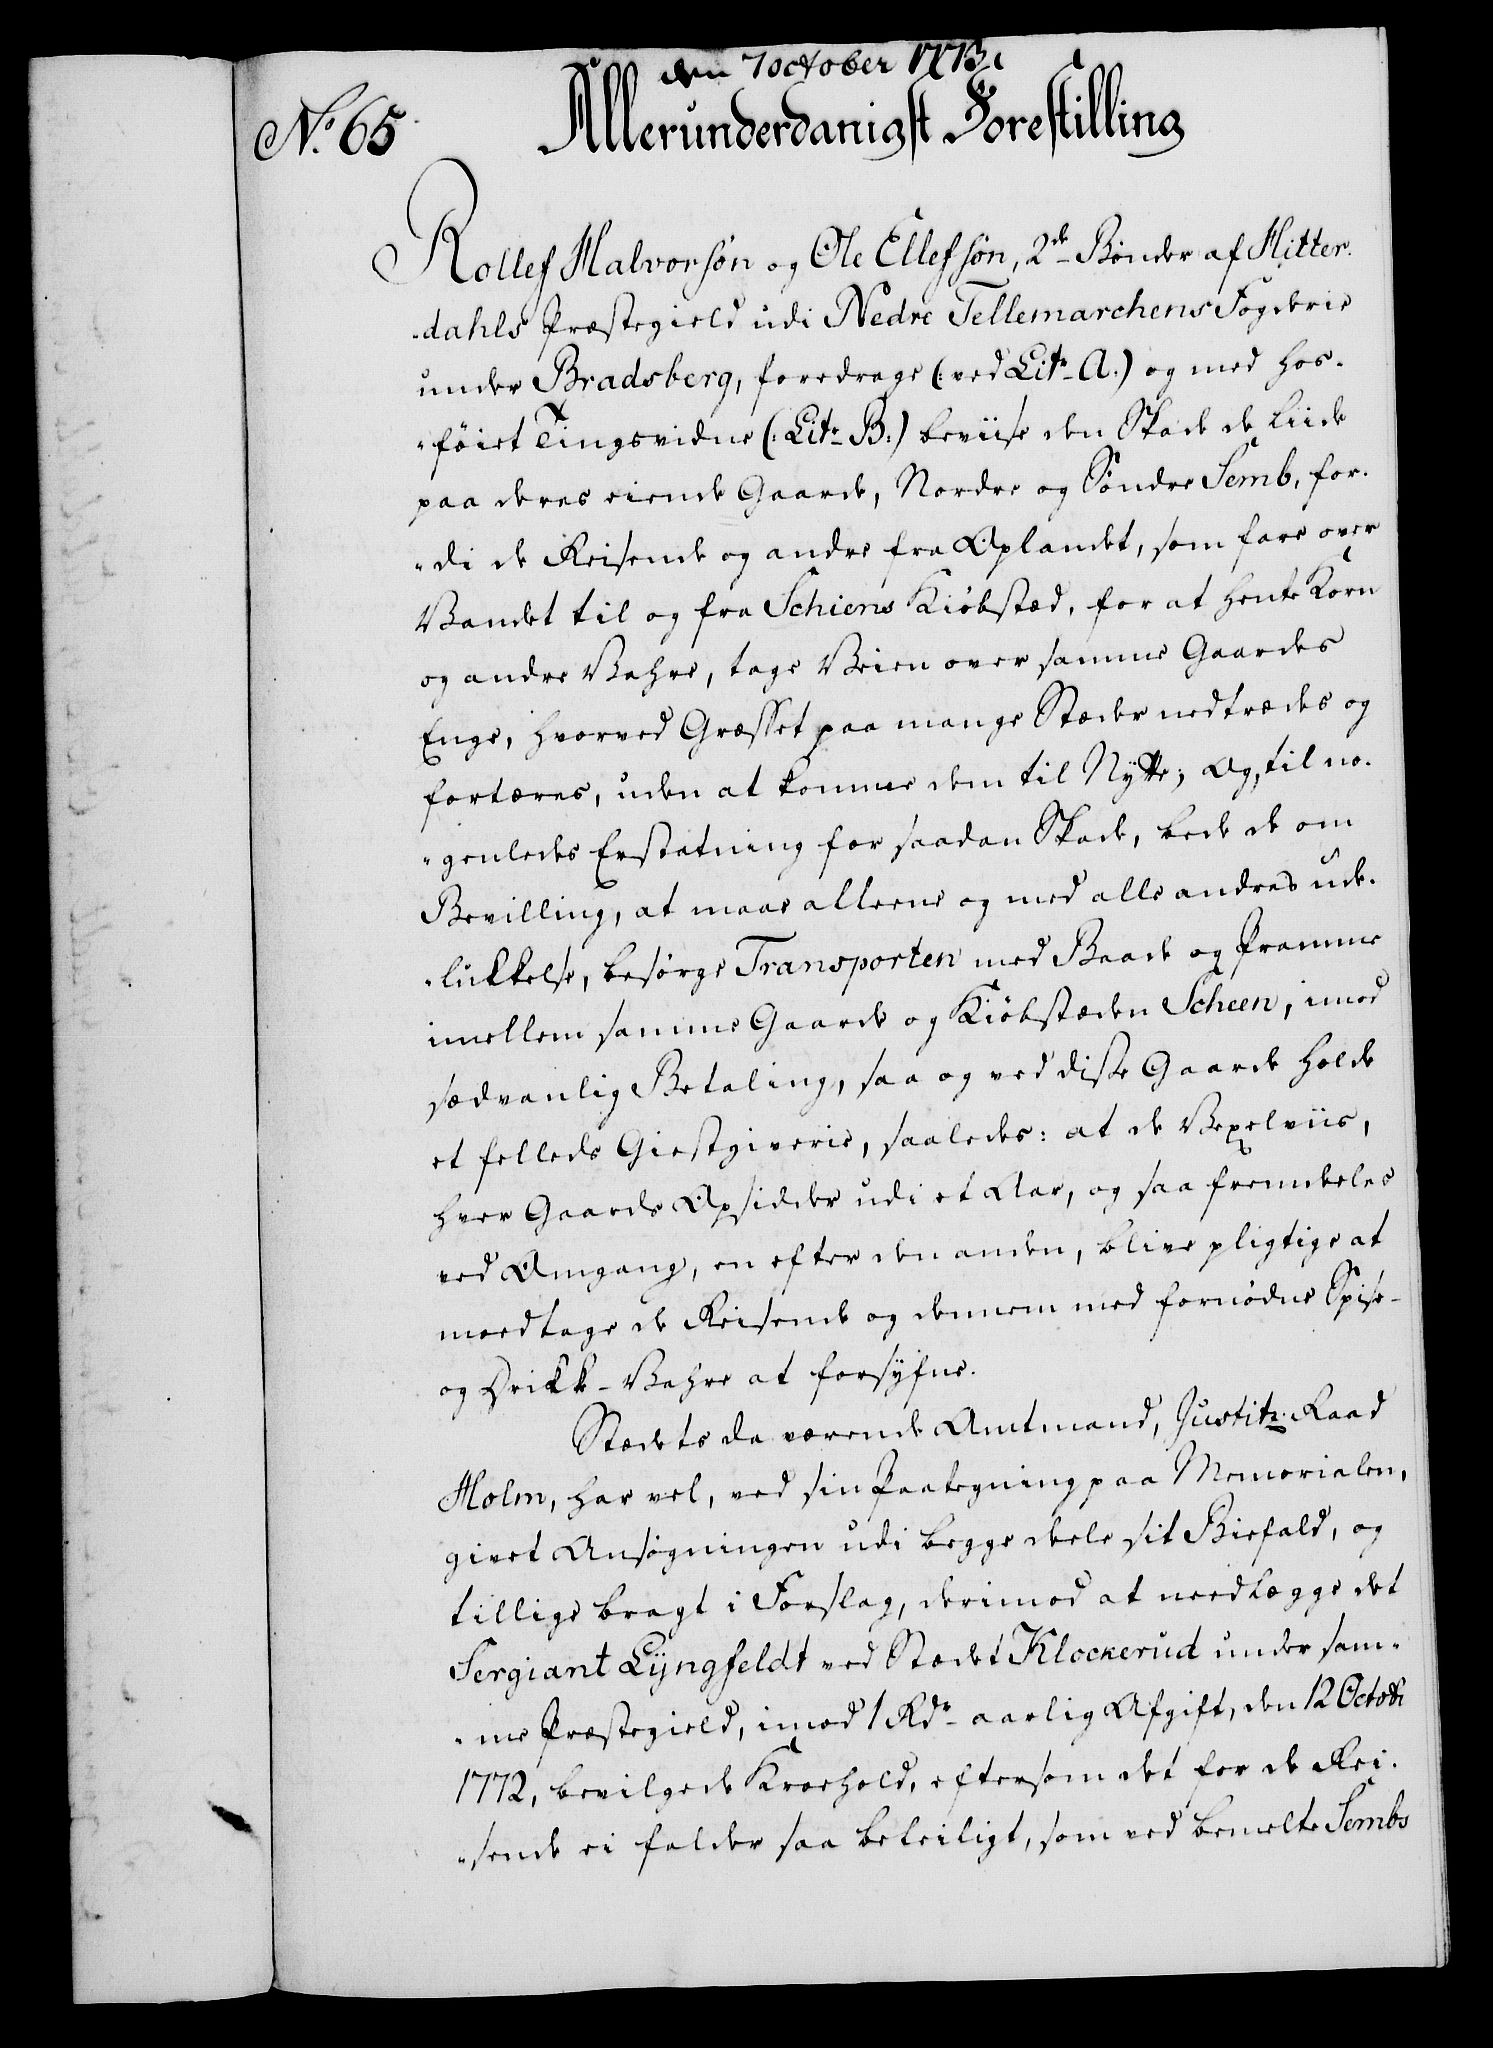 den 7 october 1773.
No. 65
Allerunderdanigst Forestilling
Rollef Halvorsøn og Ole Ellefsøn, 2de Bønder af Hitter-
-dahls Præstegield udi Nedre Tellemarchens Fogderie
under Bradsberg, foredrage (: ved Litr. A.) og med hos-
-føiet Tingsvidne (: Litr. B:) beviise den Skade de liide
paa deres eiende Gaarde, Nordre og Søndre Semb, for-
-di de Reisende og andre fra Oplandet, som fare over
Vandet til og fra Schiens Kiøbstæd, for at hente Korn
og andre Vahre, tage Veien over samme Gaardes
Enge, hvorved Græsset paa mange Stæder nedtrædes og
fortæres, uden at komme dem til Nytte; Og, til no-
-genledes Erstatning for saadan Skade, bede de om
Bevilling, at maae alleene og med alle andres ude-
-lukkelse, besørge Transporten med Baade og Pramme
imellem samme Gaarde og Kiøbstæden Scheen, imod
sædvanlig Betaling, saa og ved disse Gaarde holde
et felleds Giestgiverie, saaledes: at de Vexelviis,
hver Gaards Opsidder udi et Aar, og saa fremdeeles
ved Omgang, en efter den anden, blive pligtige at
modtage de Reisende og dennem med fornødne Spise-
og Drikke-Vahre at forsyfne.
Stædets da værende Amtmand, Justitz-Raad
Holm, har vel, ved sin Paategning paa Memorialen,
givet Ansøgningen udi begge deele sit Biefald, og
tillige bragt i Forslag, derimod at nedlægge det
Sergiant Lyngfeldt ved Stædet Klockerud under sam-
-me Præstegield, imod 1 Rdr. aarlig Afgift, den 12 Octobr
1772, bevilgede Kroehold, eftersom det for de Rei-
-sende ei falder saa beleiligt, som ved bemelte Sembs